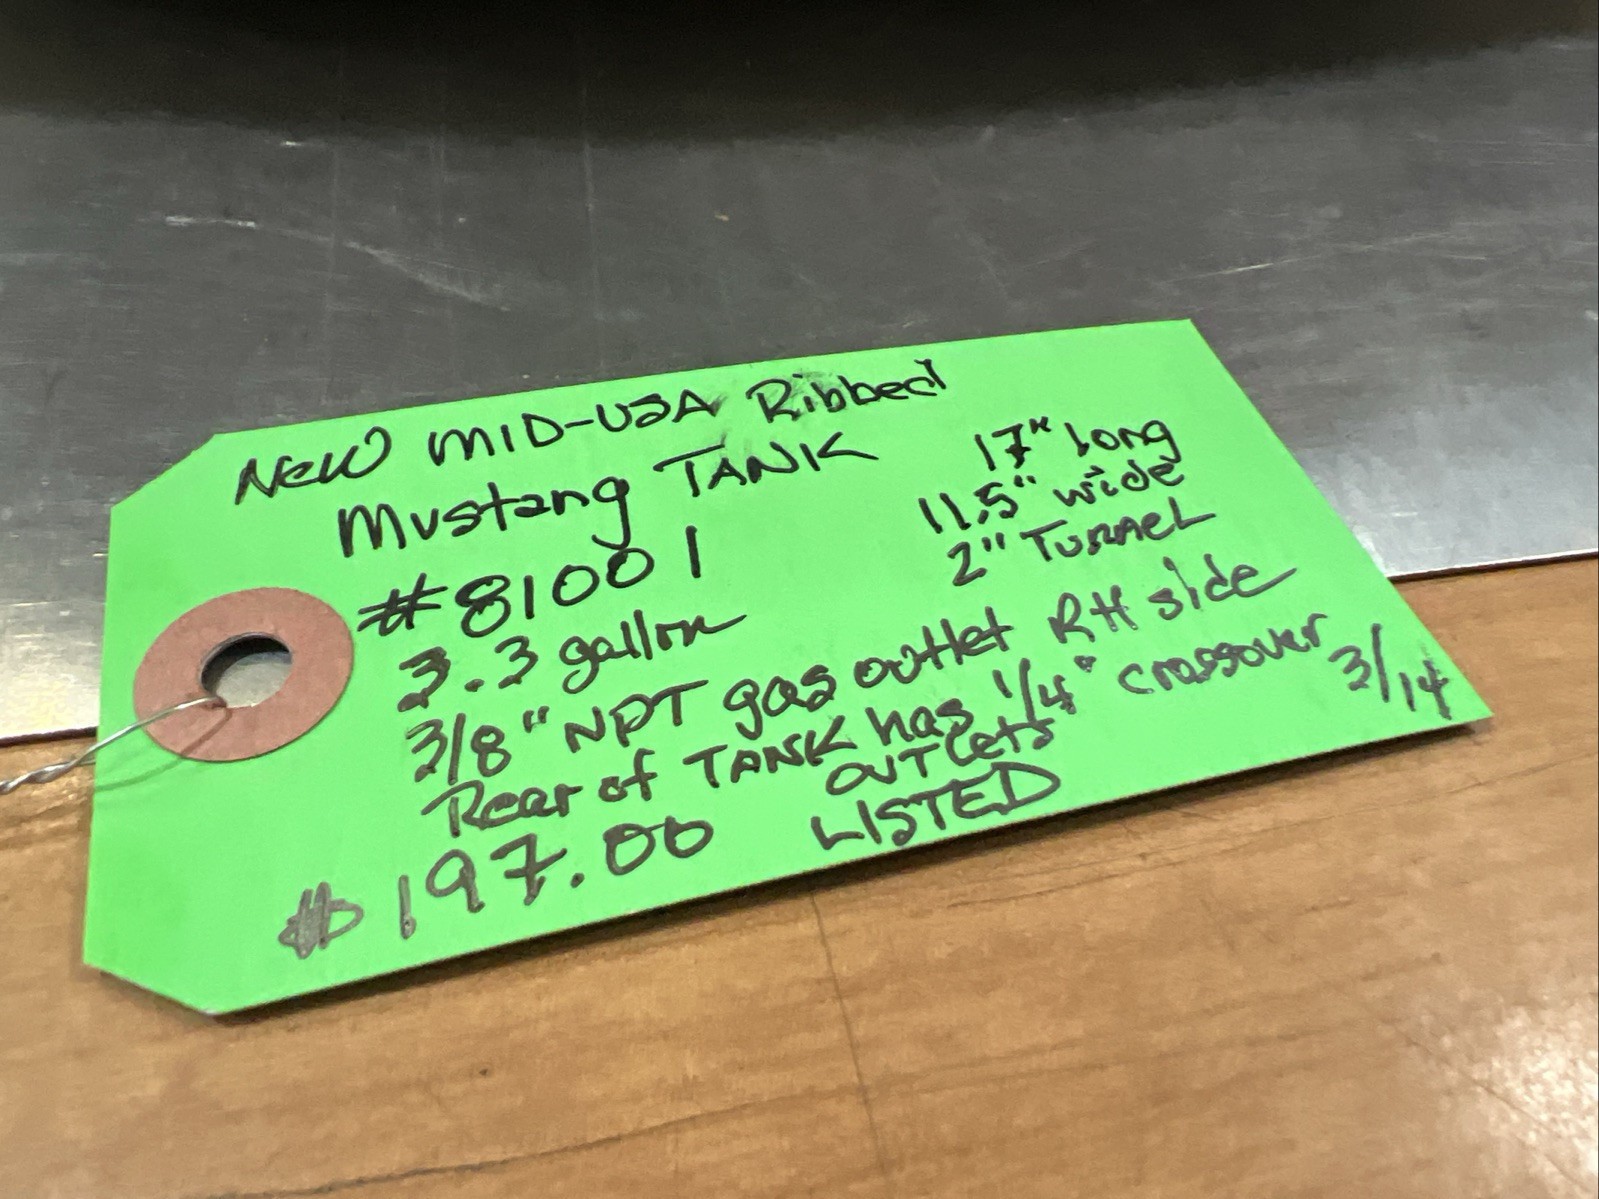 New MID-USA Ribbed
Mustang TANK
#81001
3.3 gallon
17" long
11.5" wide
2" TUNNEL
3/8" NPT gas outlet RH side
Rear of TANK has 1/4" crossover
OUTLets
$197.00 LISTED
3/14